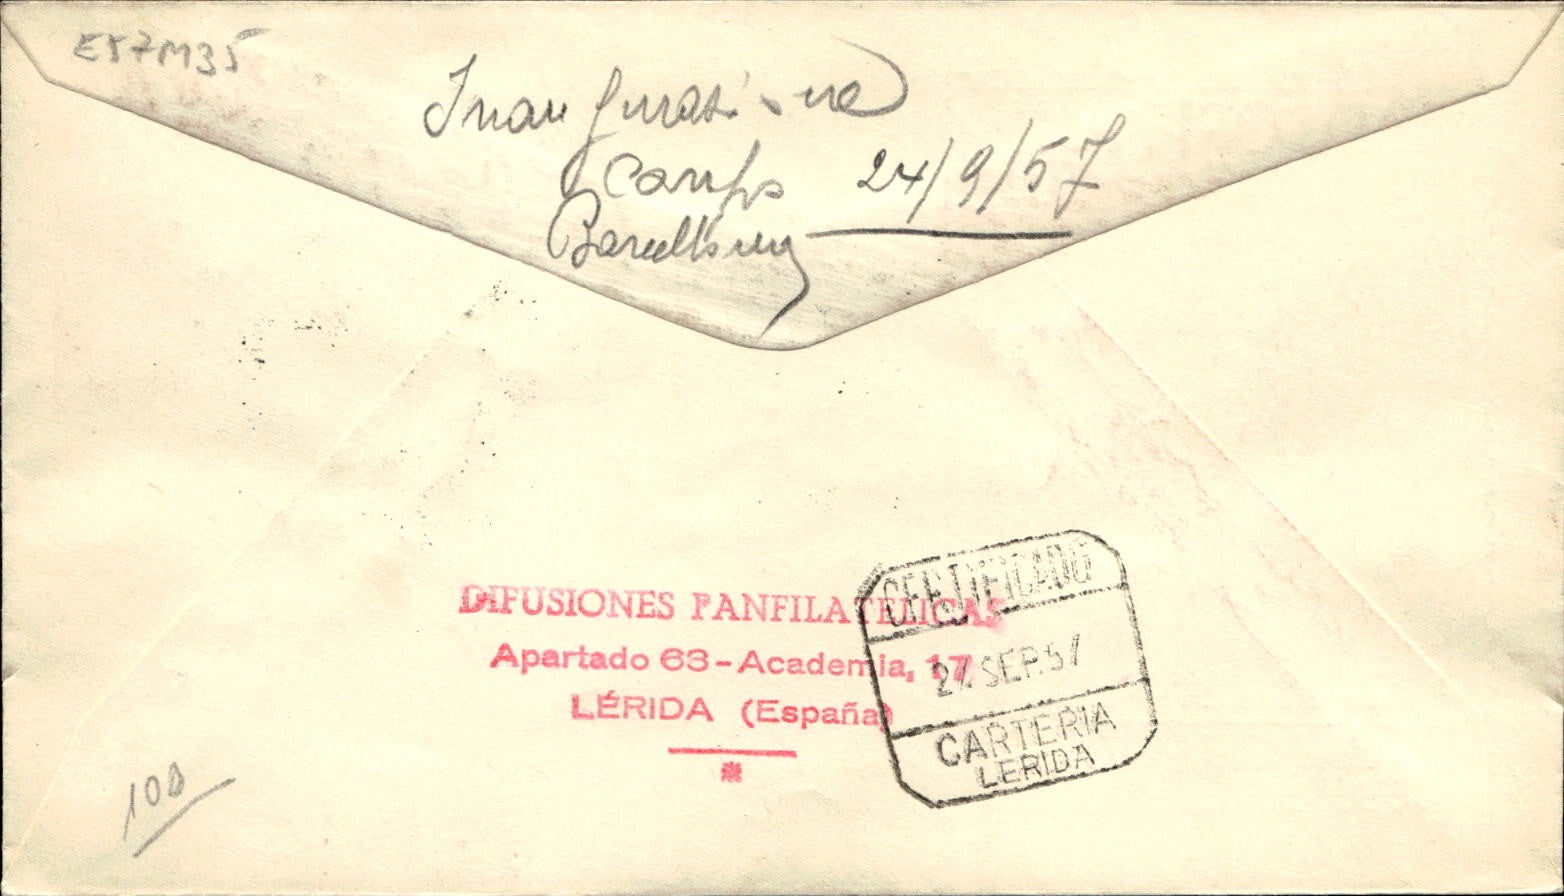 E57M35
Inauguración
camp 24/9/57
Barcelona
DIFUSIONES PANFILATELICAS
Apartado 63-Academia, 17
LÉRIDA (España)
CERTIFICADO
27 SEP.57
CARTERIA
LERIDA
100